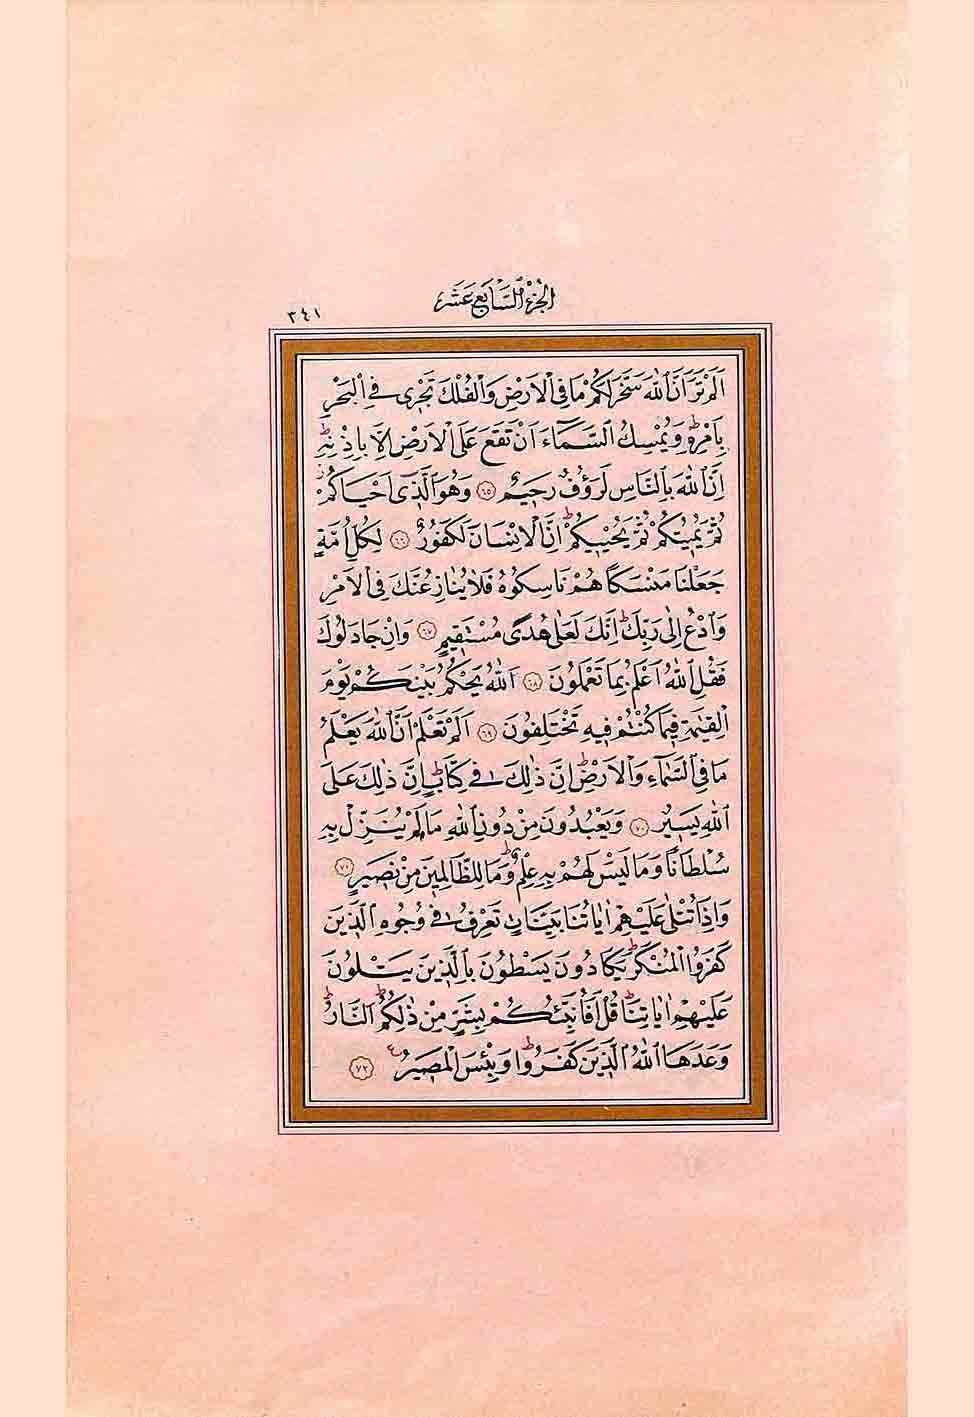 اَلْجُزْءُ السَّابِعَ عَشَرَ
٣٤١
اَلَمْ تَرَ اَنَّ اللّٰهَ سَخَّرَ لَكُمْ مَا فِي الْاَرْضِ وَالْفُلْكَ تَجْر۪ي فِي الْبَحْرِ
بِاَمْرِه۪ۜ وَيُمْسِكُ السَّمَٓاءَ اَنْ تَقَعَ عَلَى الْاَرْضِ اِلَّا بِاِذْنِه۪ۜ
اِنَّ اللّٰهَ بِالنَّاسِ لَرَؤُ۫فٌ رَح۪يمٌ ﴿٦٥﴾ وَهُوَ الَّذ۪ٓي اَحْيَاكُمْۘ
ثُمَّ يُم۪يتُكُمْ ثُمَّ يُحْي۪يكُمْۜ اِنَّ الْاِنْسَانَ لَكَفُورٌ ﴿٦٦﴾ لِكُلِّ اُمَّةٍ
جَعَلْنَا مَنْسَكًا هُمْ نَاسِكُوهُ فَلَا يُنَازِعُنَّكَ فِي الْاَمْرِ
وَادْعُ اِلٰى رَبِّكَۜ اِنَّكَ لَعَلٰى هُدًى مُسْتَق۪يمٍ ﴿٦٧﴾ وَاِنْ جَادَلُوكَ
فَقُلِ اللّٰهُ اَعْلَمُ بِمَا تَعْمَلُونَ ﴿٦٨﴾ اَللّٰهُ يَحْكُمُ بَيْنَكُمْ يَوْمَ
الْقِيٰمَةِ ف۪يمَا كُنْتُمْ ف۪يهِ تَخْتَلِفُونَ ﴿٦٩﴾ اَلَمْ تَعْلَمْ اَنَّ اللّٰهَ يَعْلَمُ
مَا فِي السَّمَٓاءِ وَالْاَرْضِۜ اِنَّ ذٰلِكَ ف۪ي كِتَابٍۜ اِنَّ ذٰلِكَ عَلَى
اللّٰهِ يَس۪يرٌ ﴿٧٠﴾ وَيَعْبُدُونَ مِنْ دُونِ اللّٰهِ مَا لَمْ يُنَزِّلْ بِه۪
سُلْطَانًا وَمَا لَيْسَ لَهُمْ بِه۪ عِلْمٌۜ وَمَا لِلظَّالِم۪ينَ مِنْ نَص۪يرٍ ﴿٧١﴾
وَاِذَا تُتْلٰى عَلَيْهِمْ اٰيَاتُنَا بَيِّنَاتٍ تَعْرِفُ ف۪ي وُجُوهِ الَّذ۪ينَ
كَفَرُوا الْمُنْكَرَۜ يَكَادُونَ يَسْطُونَ بِالَّذ۪ينَ يَتْلُونَ
عَلَيْهِمْ اٰيَاتِنَاۜ قُلْ اَفَاُنَبِّئُكُمْ بِشَرٍّ مِنْ ذٰلِكُمْۜ اَلنَّارُۜ
وَعَدَهَا اللّٰهُ الَّذ۪ينَ كَفَرُواۜ وَبِئْسَ الْمَص۪يرُ۟ ﴿٧٢﴾